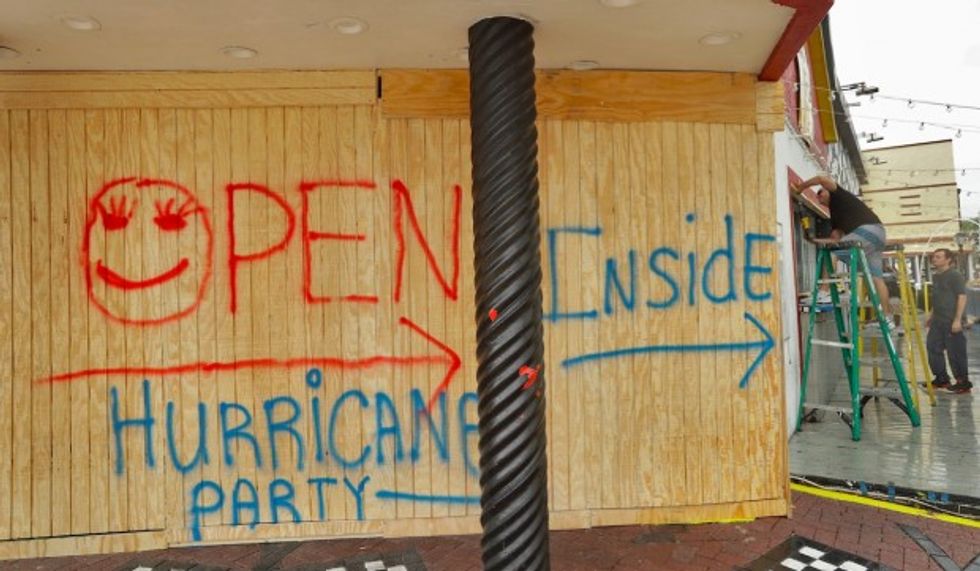 OPEN
INSIDE
HURRICANE
PARTY